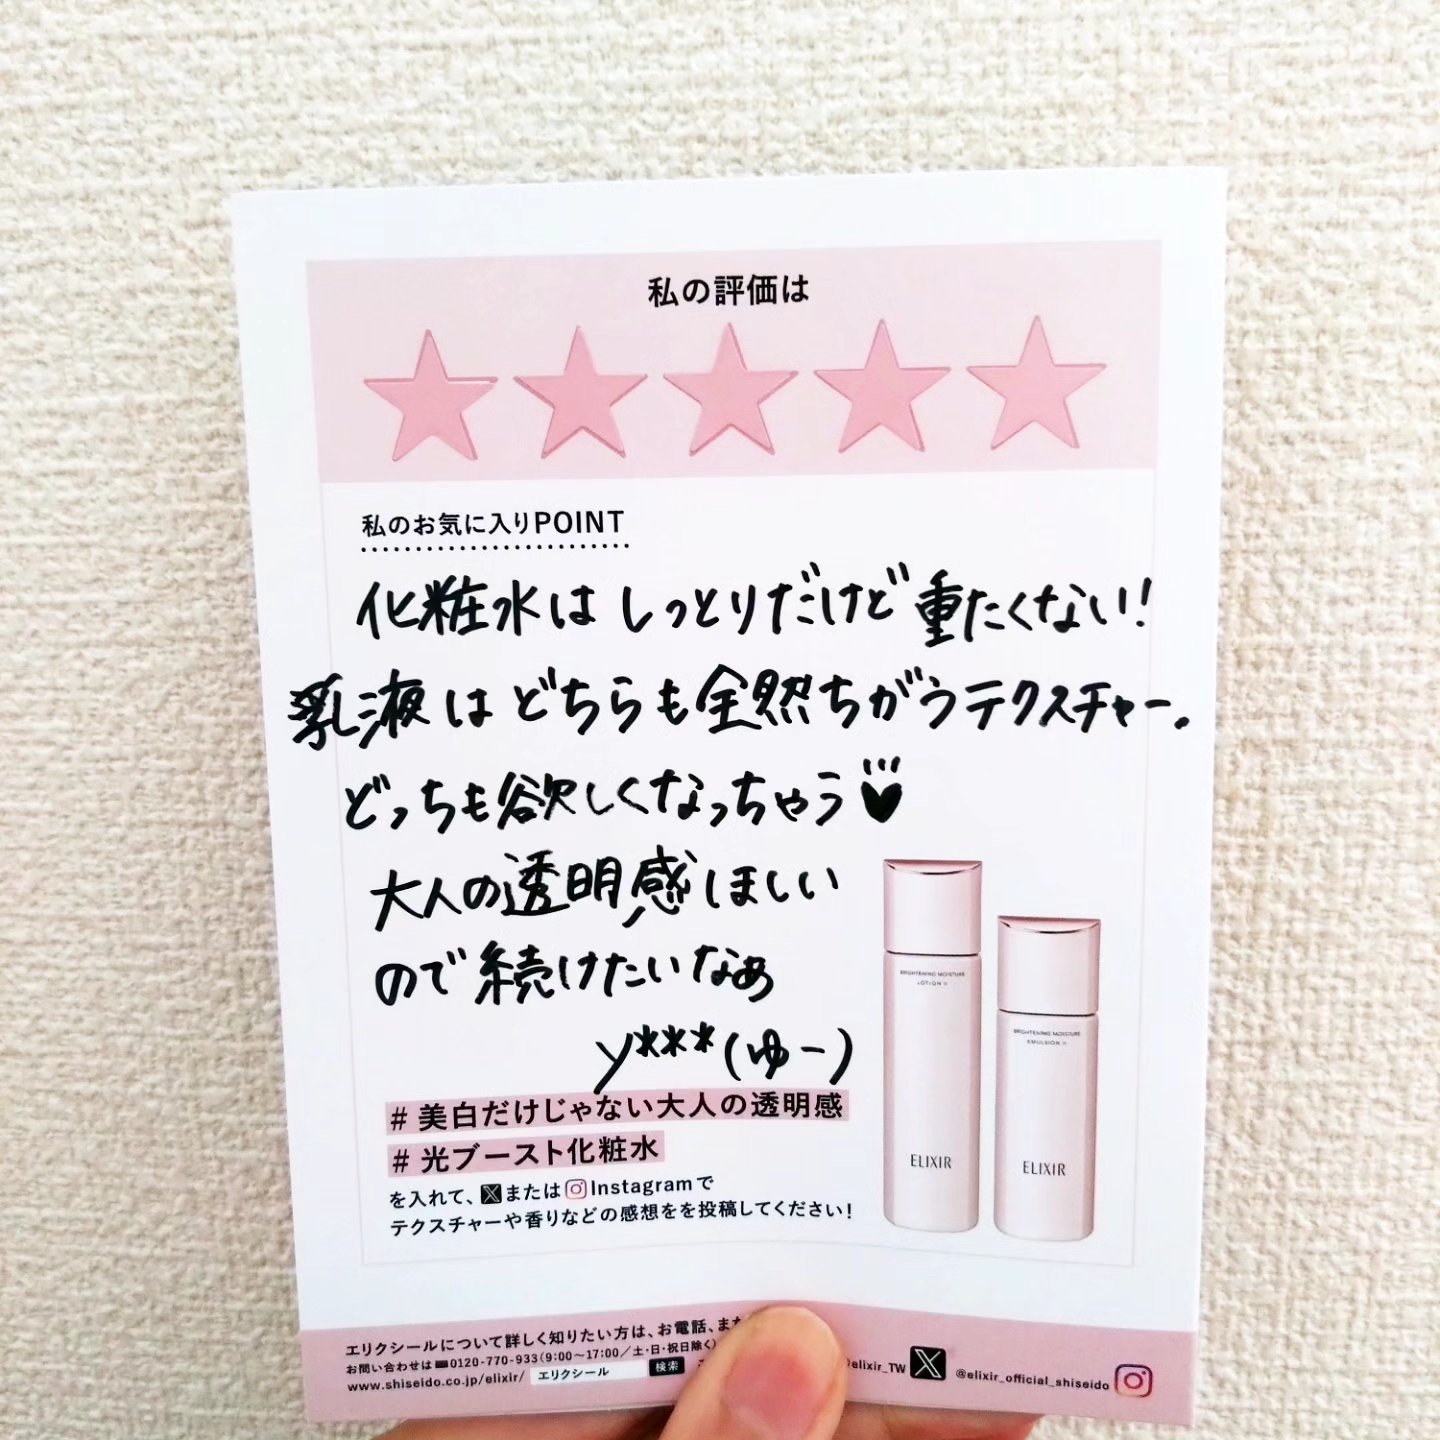 私の評価は
私のお気に入りPOINT
化粧水はしっとりだけど重たくない!
乳液はどちらも全然ちがうテクスチャー。
どっちも欲しくなっちゃう
大人の透明感ほしい
ので続けたいなぁ
y***(ゆー)
BRIGHTENING MOISTURE
LOTION II
BRIGHTENING MOISTURE
EMULSION II
ELIXIR
ELIXIR
# 美白だけじゃない大人の透明感
# 光ブースト化粧水
を入れて、XまたはInstagramで
テクスチャーや香りなどの感想をを投稿してください!
エリクシールについて詳しく知りたい方は、お電話、また
お問い合わせは 0120-770-933(9:00〜17:00/土・日・祝日除く)
www.shiseido.co.jp/elixir/ エリクシール 検索
@elixir_TW X @elixir_official_shiseido